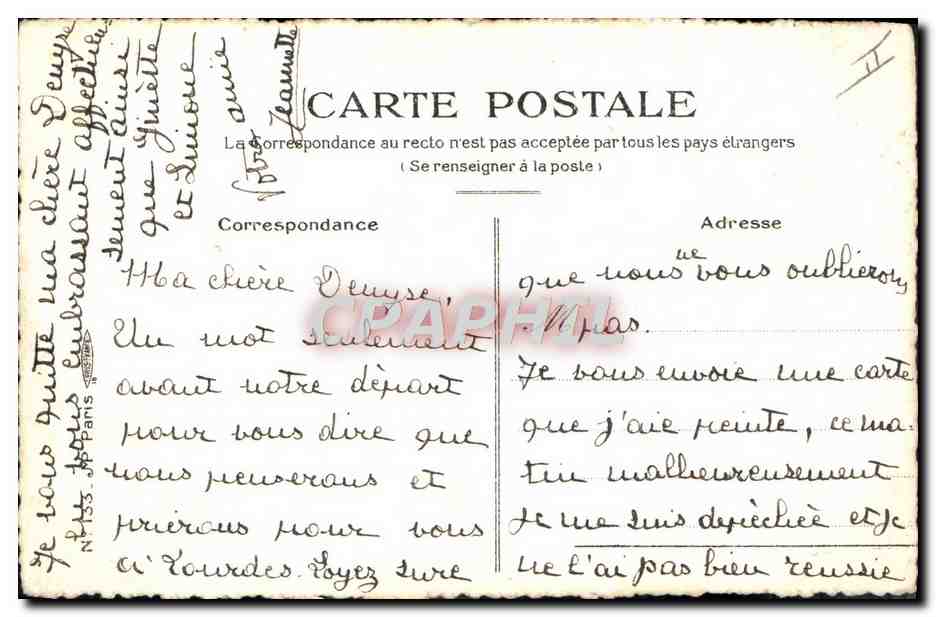 II
CARTE POSTALE
La Correspondance au recto n'est pas acceptée par tous les pays étrangers
(Se renseigner à la poste)
Correspondance
Adresse
Ma chère Denyse,
Un mot seulement
avant notre départ
pour vous dire que
nous penserons et
prierons pour vous
à Lourdes. Soyez sure
que nous ne vous oublierons
pas.
Je vous envoie une carte
que j'aie peinte, ce ma-
tin malheureusement
je me suis depèchée et je
ne l'ai pas bien réussie
Je vous quitte ma chère Denyse
vous embrassant affectueu-
sement ainsi
que Ginette
et Simone
Votre amie
Jeannette
N° 133 - JP Paris
CPAPHIL